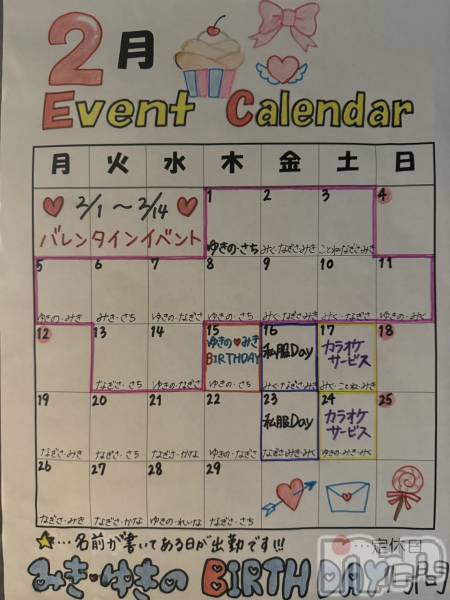 2月
Event Calendar
月 火 水 木 金 土 日
♥ 2/1 〜 2/14 ♥
バレンタインイベント
1 2 3 4
ゆきの・さち みく・なぎさ・みき ことね・なぎさ・みき
5 6 7 8 9 10 11
ゆきの・みき みき・さち ゆきの・なぎさ ゆきの・さち みく・なぎさ・みき みく・なぎさ ゆきの・みく
12 13 14 15 16 17 18
ゆきの♥みき BIRTHDAY 私服Day カラオケサービス
なぎさ・さち ゆきの・なぎさ ゆきの・さち みく・なぎさ・みき みく・ことね・みき
19 20 21 22 23 24 25
私服Day カラオケサービス
なぎさ・みき なぎさ・さち なぎさ・かな ゆきの・なぎさ なぎさ・みき・みく ゆきの・みき・みく
26 27 28 29
なぎさ・みき なぎさ・かな ゆきの・れいな なぎさ・さち
★…名前が書いてある日が出勤です!!! …定休日
みき・ゆきの BIRTHDAY